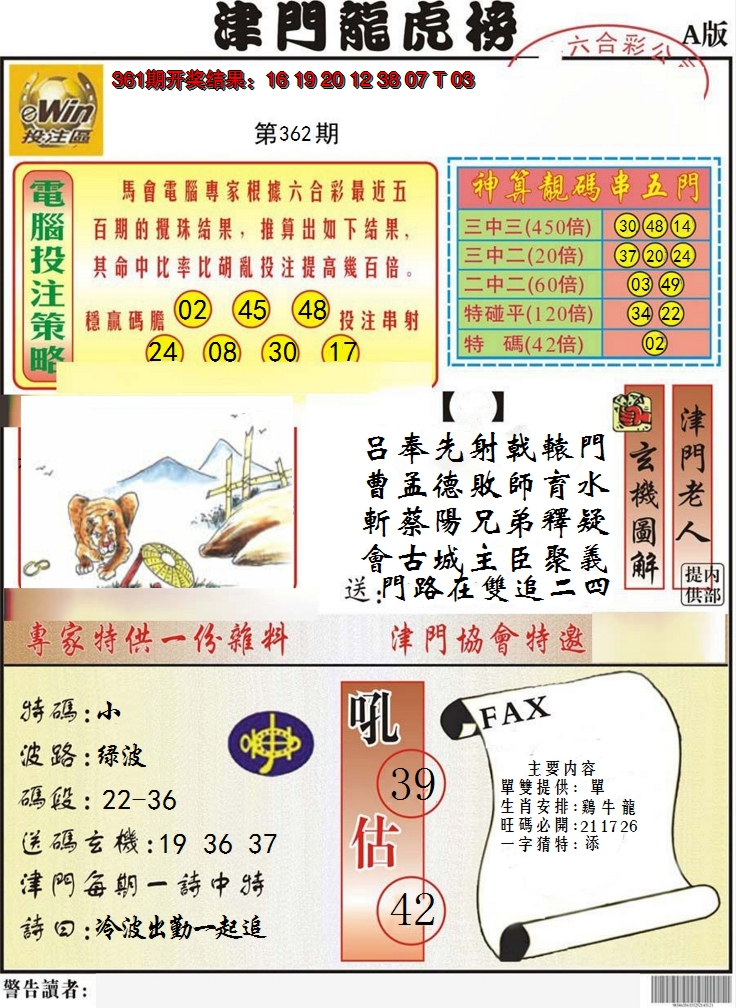 津門龍虎榜
A版
六合彩公
361期开奖结果：16 19 20 12 38 07 T 03
eWin
投注區
第362期
電腦投注策略
馬會電腦專家根據六合彩最近五
百期的攪珠结果，推算出如下结果，
其命中比率比胡亂投注提高幾百倍。
穩赢碼膽 02 45 48 投注串射
24 08 30 17
神算靚碼串五門
三中三(450倍) 30 48 14
三中二(20倍) 37 20 24
二中二(60倍) 03 49
特碰平(120倍) 34 22
特 碼(42倍) 02
【 】
吕奉先射戟轅門
曹孟德敗師育水
斬蔡陽兄弟釋疑
會古城主臣聚義
送:門路在雙追二四
玄機圖解
津門老人
内部提供
專家特供一份雜料
津門協會特邀
特碼:小
波路:绿波
碼段:22-36
送碼玄機:19 36 37
津門每期一詩中特
詩曰:冷波出勤一起追
吼 39
估 42
FAX
主要内容
單雙提供：單
生肖安排:鷄牛龍
旺碼必開:211726
一字猜特:添
警告讀者: